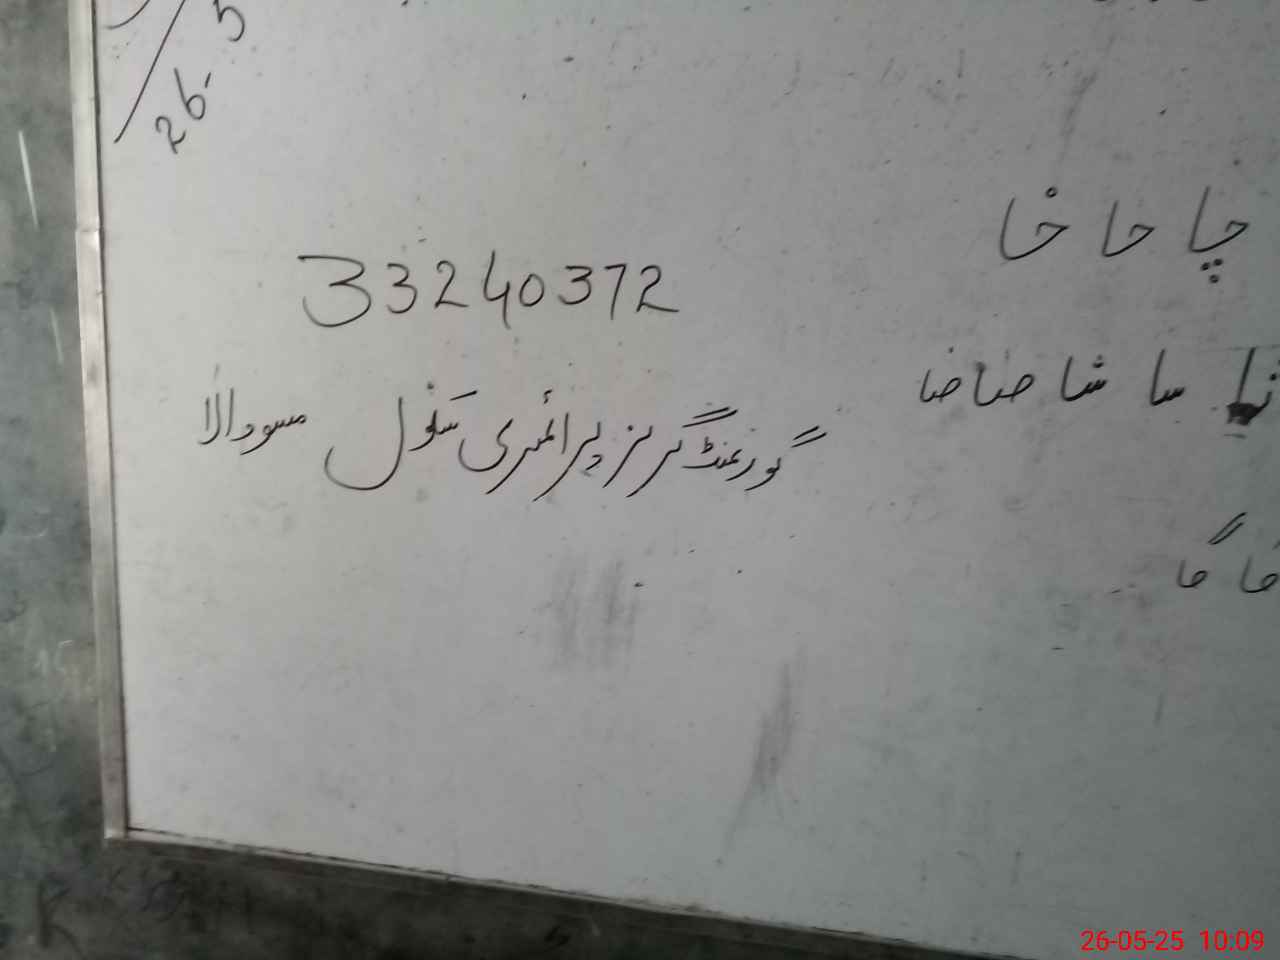 26-5
چا حا خا
33240372
سا شا صا ضا
گورنمنٹ گرلز پرائمری سکول مسووالا
فا گا
26-05-25 10:09